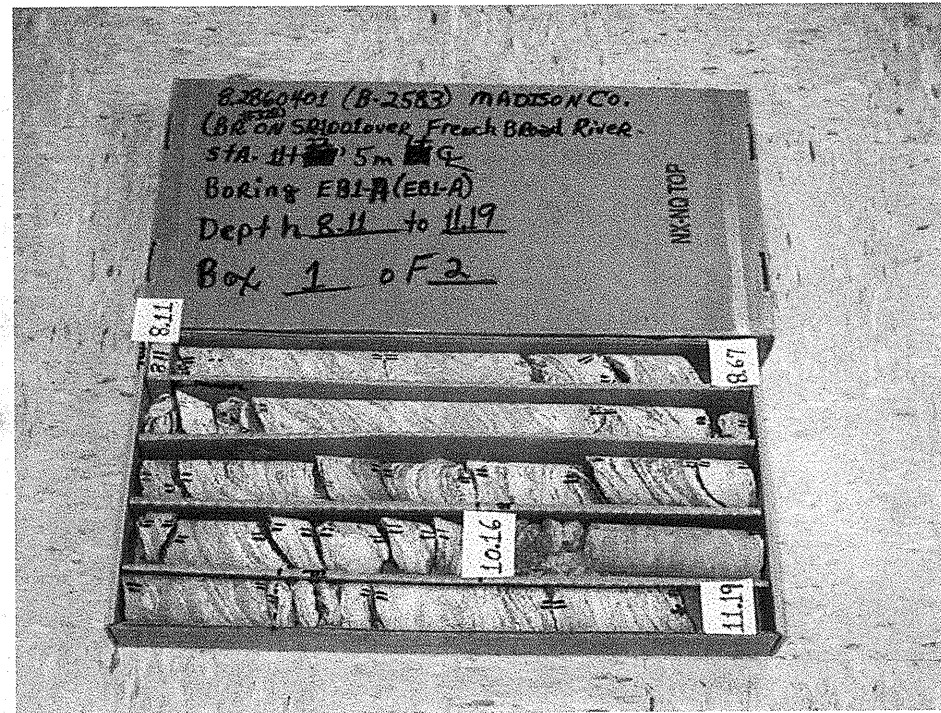 8.2860401 (B-2583) MADISON CO.
(BR ON SR1001 over French Broad River.
STA. 11+ 5m
Boring EB1-A (EB1-A)
Depth 8.11 to 11.19
Box 1 of 2
NX-NO TOP
8.11
8.11
8.67
10.16
11.19